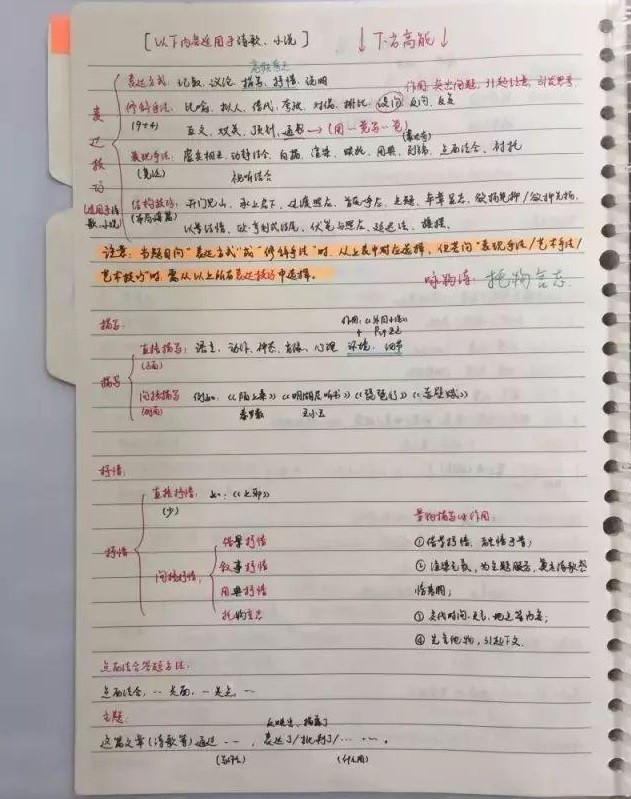 [以下内容适用于诗歌、小说] ↓下方高能↓
表达技巧
(适用于诗歌、小说)
表达方式: 记叙、议论、描写、抒情、说明
作用: 突出问题, 引起注意, 引发思考.
修辞手法: 比喻、拟人、借代、夸张、对偶、排比、设问、反问、反复
(9+4) 互文、双关、顶针、通感→(用一觉写一觉)
表现手法: 虚实相生、动静结合、白描、渲染、联想、用典、点面结合、衬托
视听结合
结构技巧: 开门见山、承上启下、过渡照应、首尾呼应、卒章显志、欲扬先抑/欲抑先扬、
以景结情、伏笔与照应、
注意: 当题目问"表达方式"或"修辞手法"时, 从上表中对应选择, 但若问"表现手法/艺术手法/
艺术技巧"时, 需从以上所有表达技巧中选择。
咏物诗: 托物言志.
描写:
描写
直接描写: 语言、动作、神态、肖像、心理、环境、细节
(正面)
间接描写 例如:《陌上桑》《明湖居听书》《琵琶行》《赤壁赋》
(侧面) 秦罗敷 王小玉
抒情:
抒情
直接抒情: 如:《上邪》
(少)
间接抒情:
借景抒情
叙事抒情
用典抒情
托物言志
景物描写的作用:
①借景抒情, 融情于景;
②渲染气氛, 为主题服务, 奠定诗歌感
情基调;
③交代时间、地点等内容;
④先言他物, 引起下文.
点面结合答题方法:
点面结合, …是面, …是点, …
主题:
反映出、揭露了
这篇文章(诗歌等)通过……, 表达了/批判了/……。